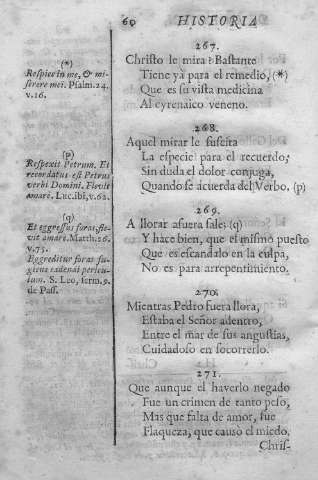 60 HISTORIA
267.
Christo le mira: Bastante
Tiene ya para el remedio, (*)
Que es su vista medicina
Al cyrenaico veneno.
268.
Aquel mirar le suscita
La especie para el recuerdo;
Sin duda el dolor conjuga,
Quando se acuerda del Verbo. (p)
269.
A llorar afuera sale; (q)
Y hace bien, que el mismo puesto
Que es escandalo en la culpa,
No es para arrepentimiento.
270.
Mientras Pedro fuera llora,
Estaba el Señor adentro,
Entre el mar de sus angustias,
Cuidadoso en socorrerlo.
271.
Que aunque el haverlo negado
Fue un crimen de tanto peso,
Mas que falta de amor, fue
Flaqueza, que causò el miedo.
Chris-
(*)
Respice in me, & mi-
serere mei. Psalm. 24.
v. 16.
(p)
Respexit Petrum. Et
recordatus est Petrus
verbi Domini. Flevit
amarè. Luc. ibi, v. 62.
(q)
Et egressus foras, fle-
vit amarè. Matth. 26.
v. 75.
Eggreditur foras fu-
giens cadendi pericu-
lum. S. Leo, serm. 9.
de Pass.